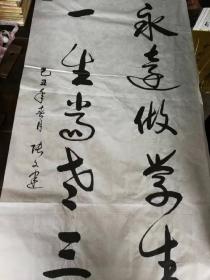 永远做学生
一生当老三
己丑年春月 陈文建